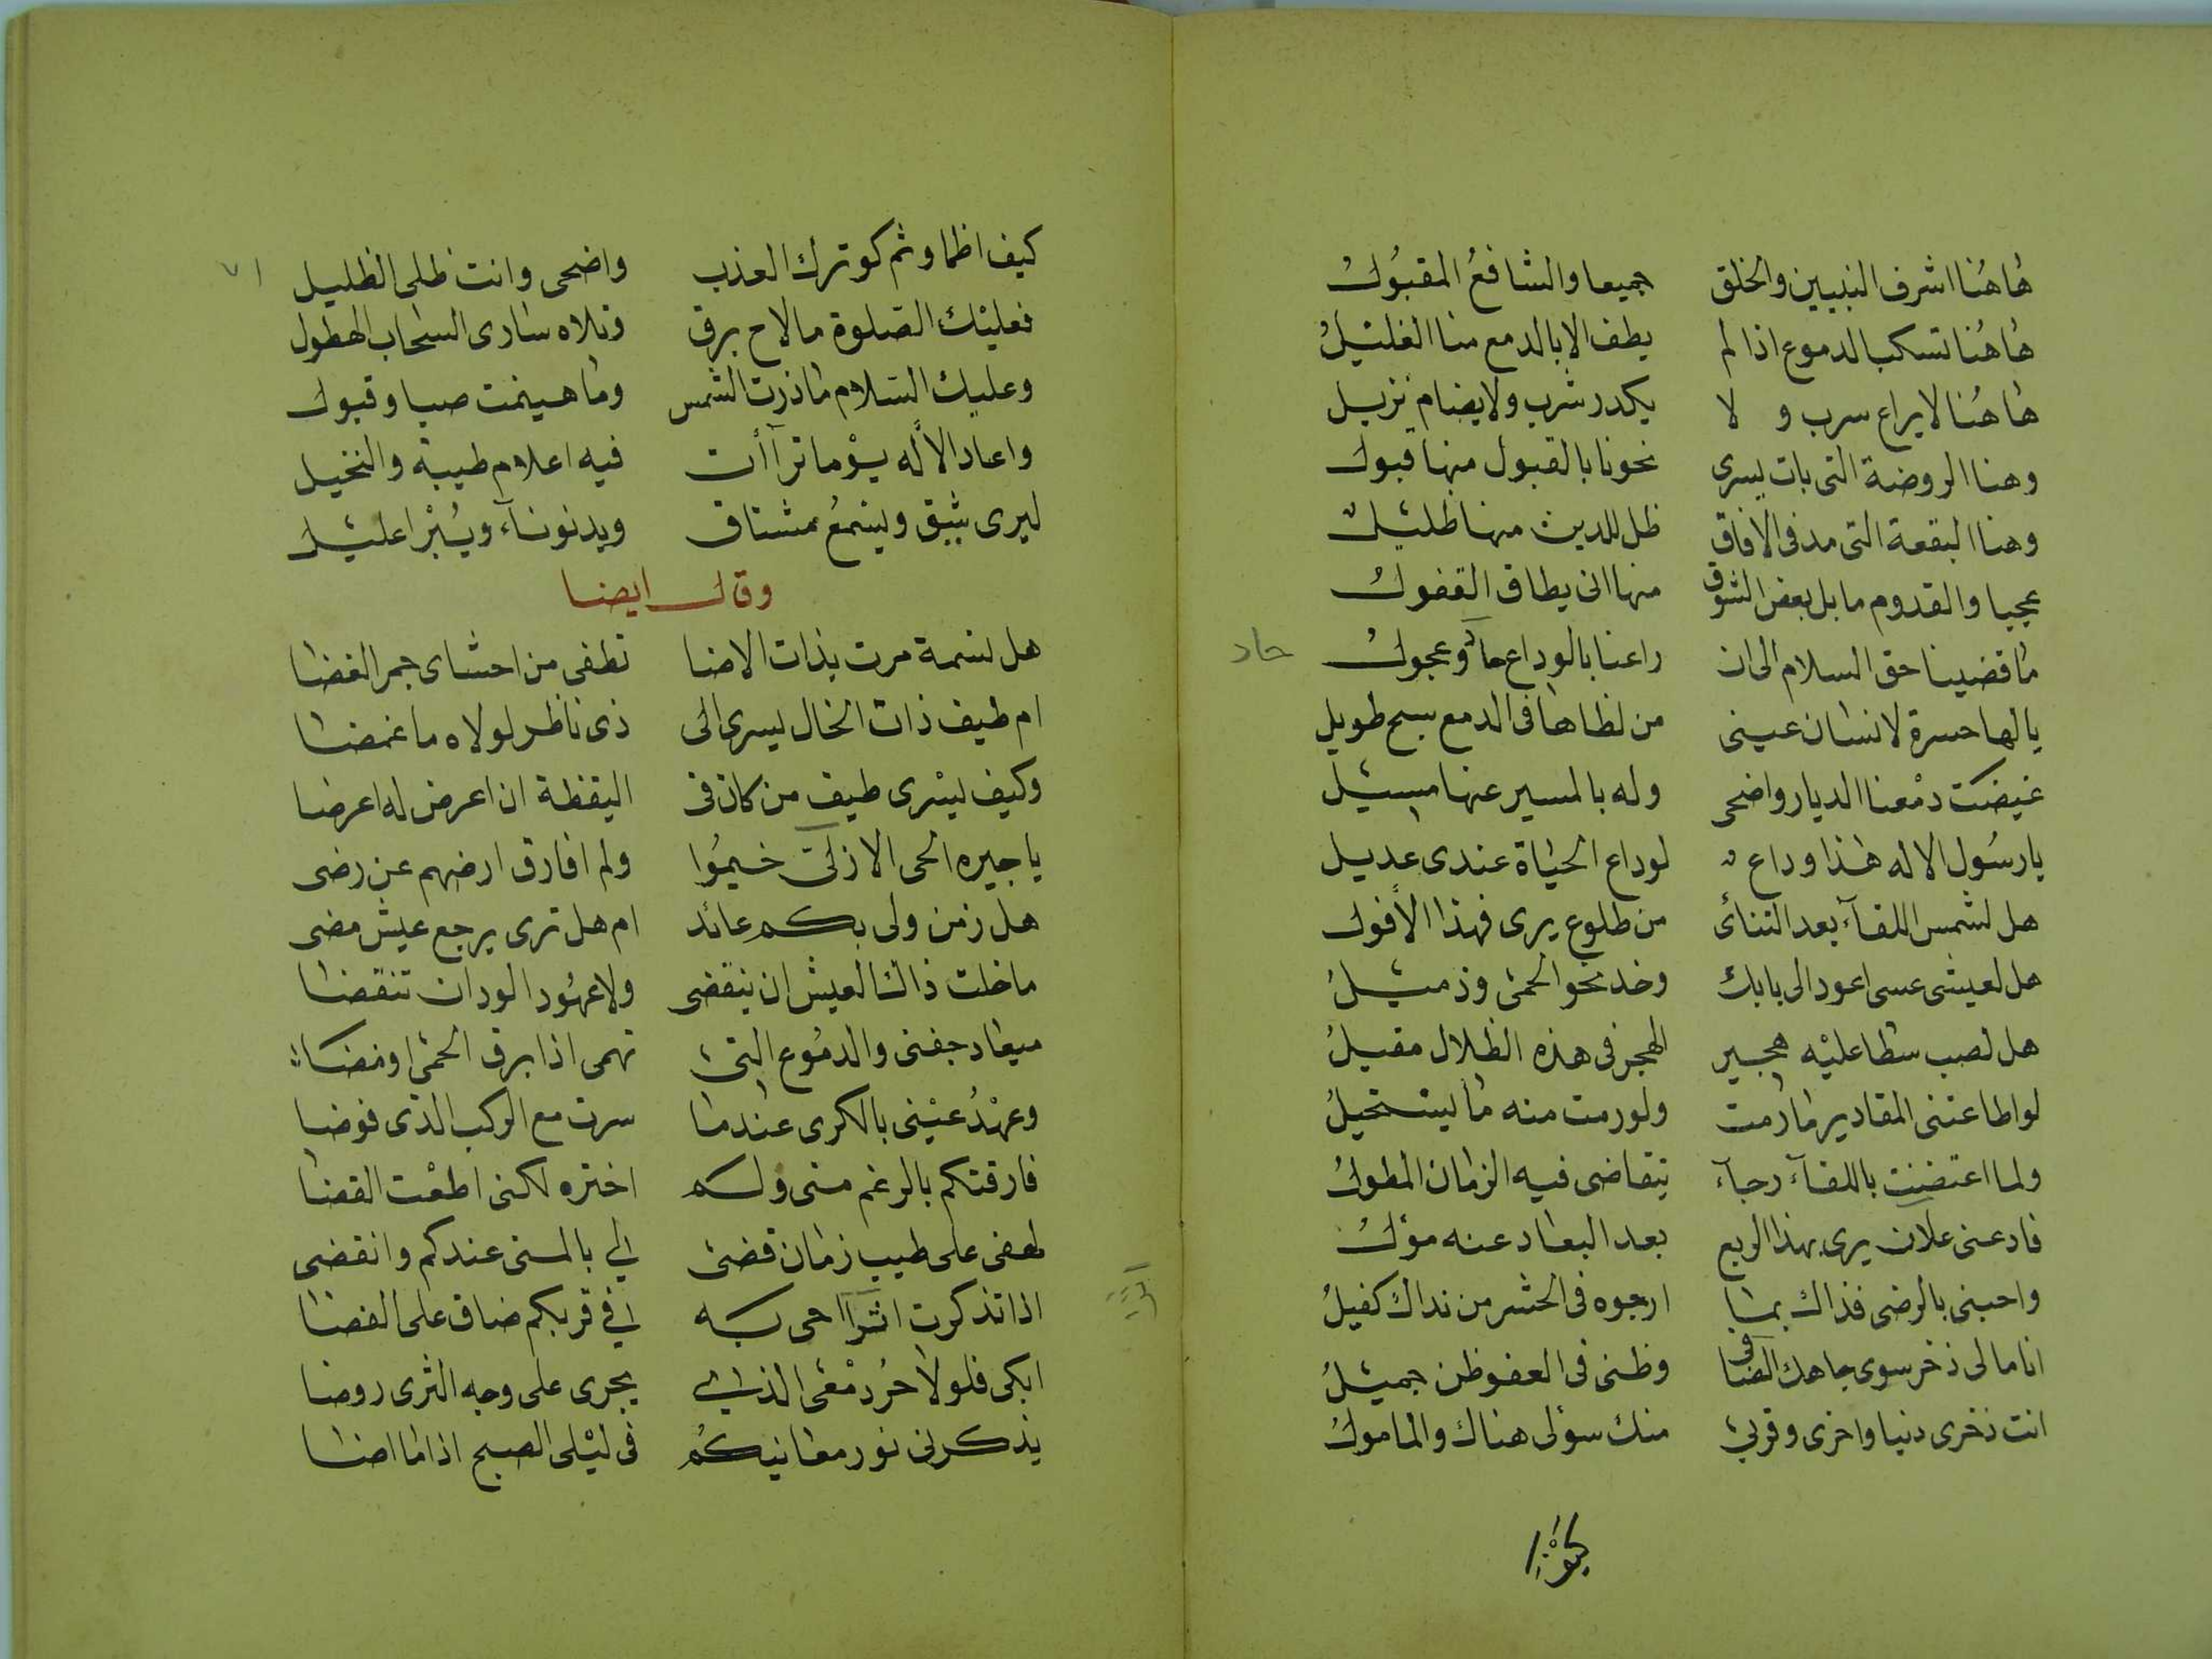 هُاهُنا اشرف النبيين والخلق جميعا والشافعُ المقبُولُ
هُاهُنا تسكب الدموع اذا لم يطف الا بالدمع منا الغليلُ
هاهُنا لا يراع سرب و لا يكدر شرب ولا يضام نزيل
وهنا الروضة التى بات يسرى نحونا بالقبول منها قبول
وهنا البقعة التى مد فى الافاق ظل للدين منها ظليلٌ
عجبا والقدوم ما بل بعض الشوق منها انى يطاق القفولُ
مُا قضينا حق السلام الى ان راعنا بالوداع حادٍ عجولُ
حاد
يا لها حسرة لانسان عينى من لظاها فى الدمع سبح طويل
غيضت دمْعنا الديار واضحى وله بالمسير عنها مسيْل
يا رسُول الاله هٰذا وداعٌ لوداع الحيٰاة عندى عديل
هل لشمس اللقآء بعد التنائى من طلوع يرى فهذا الأفول
هل لعيشى عسى اعود الى بابك وخد نحو الحمى وذميْلُ
هل لصب سطا عليْه هجير الهجر فى هذه الظلال مقيلُ
لو اطاعتنى المقادير مٰا رمت ولو رمت منه مٰا يستحيلُ
ولما اعتضنت باللقآء رجآء يتقاضى فيه الزمٰان المطولُ
فادعنى علان يرى بهذا الربع بعد البعاد عنه مؤلُ
واحبنى بالرضى فذاك بمٰا ارجوه فى الحشر من نداك كفيلُ
انا مالى ذخر سوى جاهك الضافى وظنى فى العفو ظن جميْلُ
انت ذخرى دنيا واخرى وقربى منك سؤلى هناك والمامولُ
كيف اظما وثم كوثرك العذب واضحى وانت ظلى الظليل
فعليْك الصلوة ما لاح برق وتلاه سٰارى السحاب الهطول
وعليك السلام مٰا ذرت الشمس ومٰا هينمت صبا وقبول
واعاد الأله يوْما تراأت فيه اعلام طيبة والنخيل
ليرى شيق ويتمعُ مشتاق ويدنو نآء ويُبْرا عليْل
وقال ايضا
هل نسمة مرت بذات الاضا تطفى من احشاى جمر الغضا
ام طيف ذات الخال يسرى الى ذى ناظر لولاه ما غمضا
وكيف يسْرى طيف من كان فى اليقظة ان اعرض له اعرضا
يا جيره الحى الاولى خيمُوا ولم افارق ارضهم عن رضى
هل زمن ولى بكم عائد ام هل ترى يرجع عيش مضى
ما خلت ذاك العيش ان ينقضى ولا عهُود الودان تنقضا
ميعاد جفنى والدمُوع التى تهمى اذا برق الحمى اومضا
وعهْدُ عيْنى بالكرى عندمٰا سرت مع الركب الذى قوضا
فارقتكم بالرغم منى ولم اختره لكنى اطعْت القضا
لهفى على طيب زمٰان قضى لي بالمنى عندكم وانقضى
اذا تذكرت اثرا حى به فى قربكم ضاق على الفضا
ابكى فلولا حُر دمْعى الذى يجرى على وجه الثرى روضا
يذكرنى نور معانيكُم فى ليْلى الصبح اذا مٰا اضا